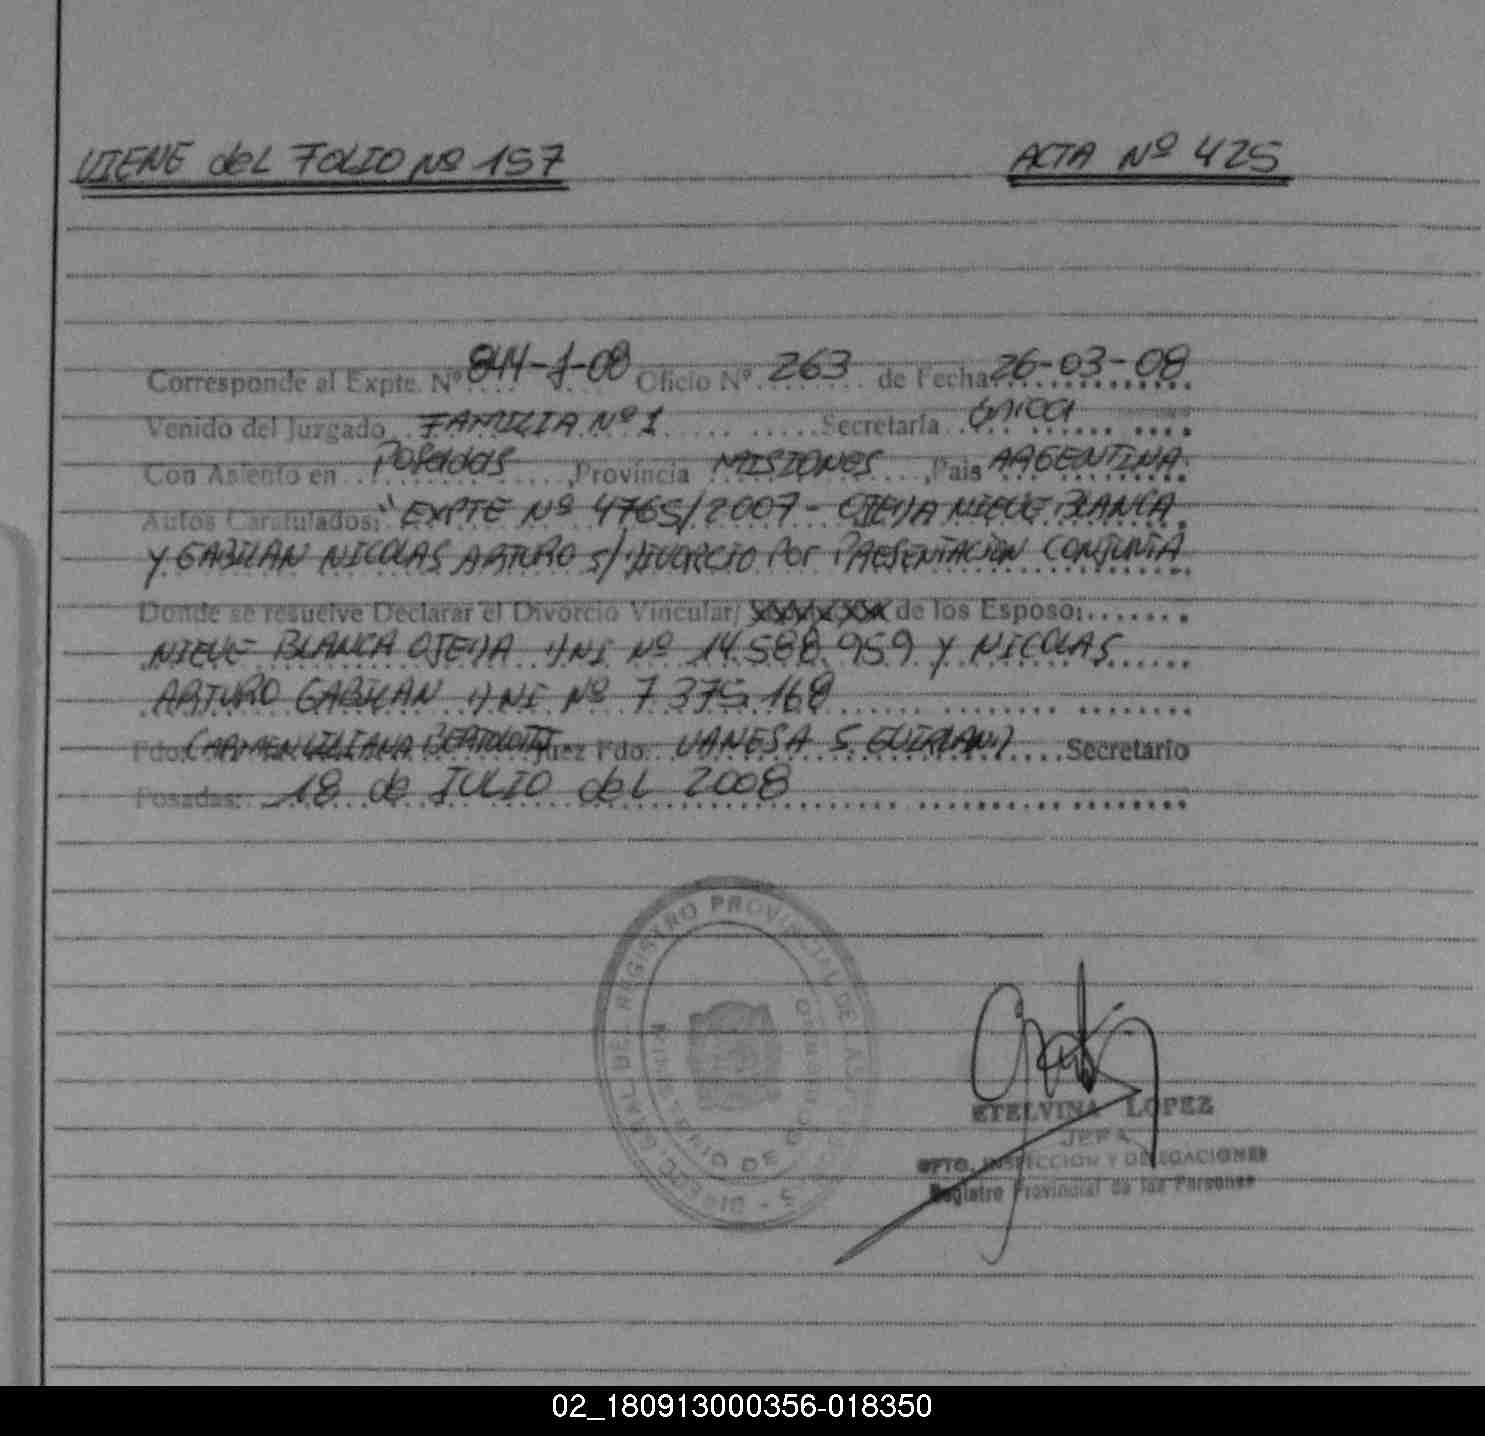 VIENE del FOLIO Nº 157
ACTA Nº 425
Corresponde al Expte. Nº 844-J-08 Oficio Nº 263 de Fecha 26-03-08
Venido del Juzgado FAMILIA Nº 1 Secretaría única
Con Asiento en Posadas, Provincia MISIONES, País ARGENTINA
Autos Caratulados: "EXPTE Nº 4765/2007 - OJEDA NIEVE BLANCA
Y GABILAN NICOLAS ARTURO S/ DIVORCIO POR PRESENTACION CONJUNTA
Donde se resuelve Declarar el Divorcio Vincular/ de los Esposo:
NIEVE BLANCA OJEDA DNI Nº 14.588.959 Y NICOLAS
ARTURO GABILAN DNI Nº 7.375.168
Fdo. CARMEN LILIANA BERTOLOTTI Juez Fdo. VANESA S. Secretario
Posadas: 18 de JULIO del 2008
DIREC. GRAL DEL REGISTRO PROVINCIAL DE LAS PERSONAS
ETELVINA LOPEZ
JEFA
DPTO. INSPECCION Y DELEGACIONES
Registro Provincial de las Personas
02_180913000356-018350